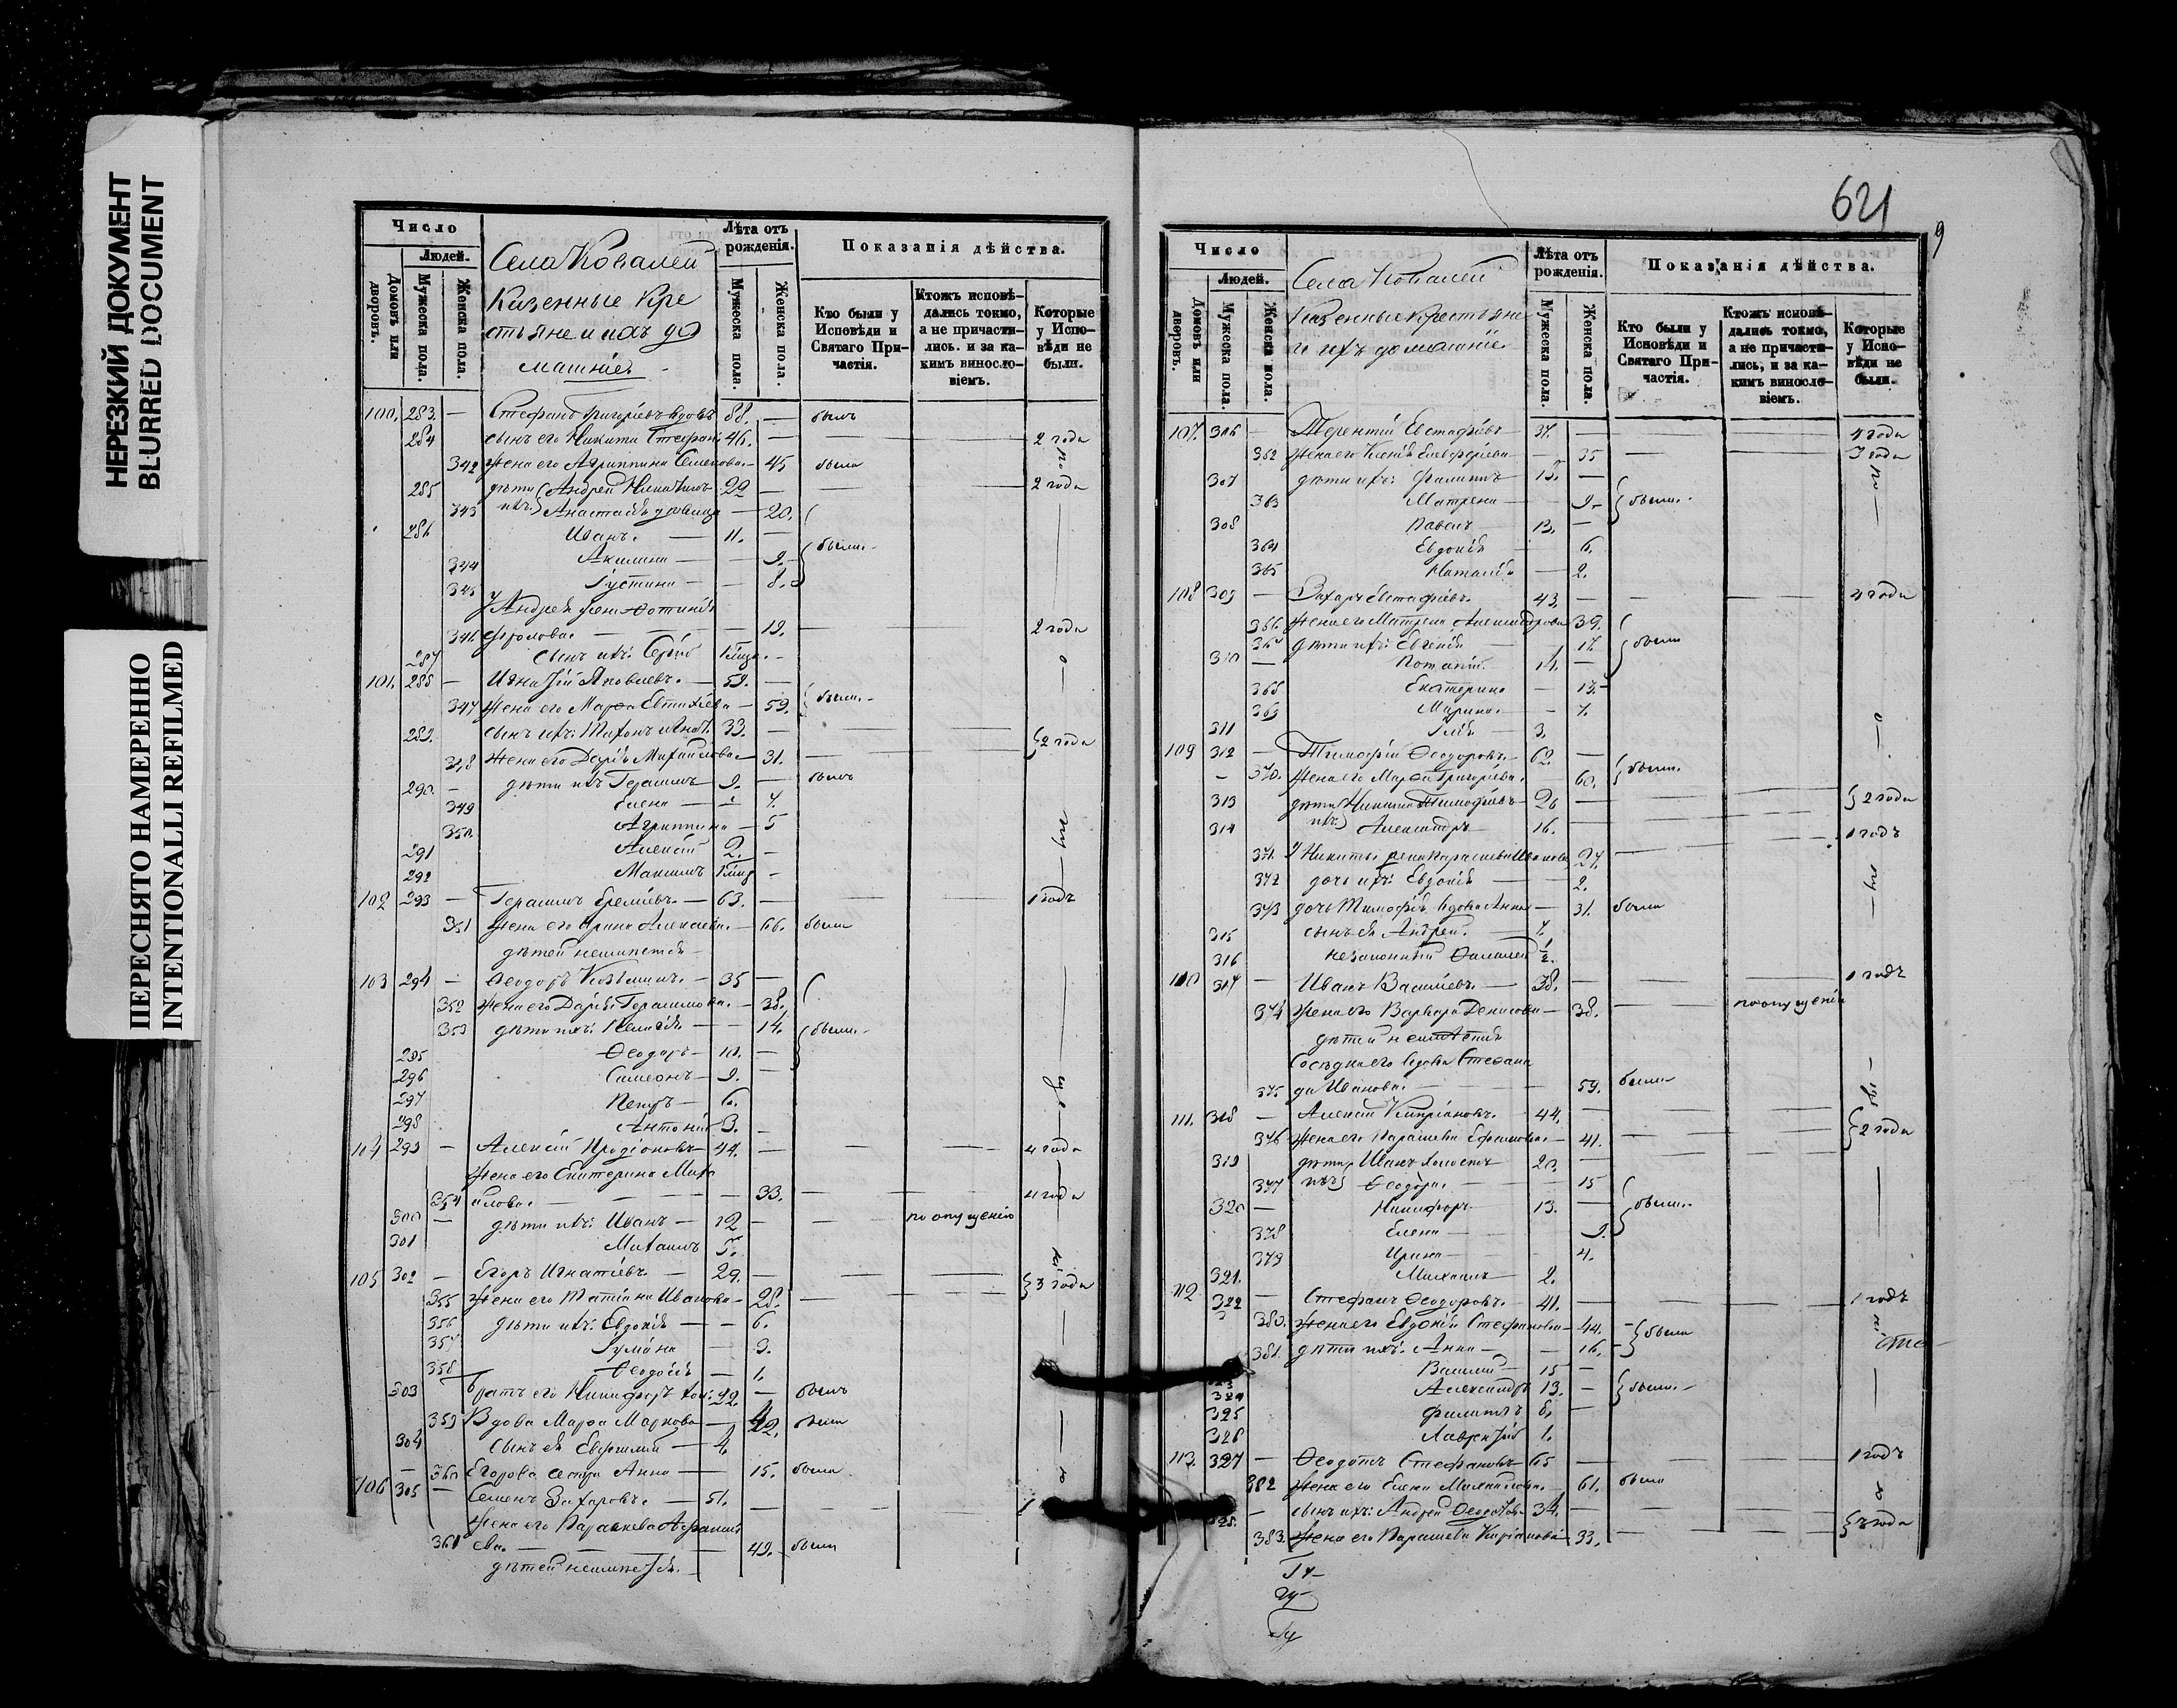 НЕРЕЗКИЙ ДОКУМЕНТ
BLURRED DOCUMENT
ПЕРЕСНЯТО НАМЕРЕННО
INTENTIONALLI REFILMED
Число
Людей.
Домовъ или дворовъ.
Мужеска пола.
Женска пола.
Села Ковалей
Казенные Кре
стьяне и ихъ до
машніе
Лѣта отъ рожденія.
Мужеска пола.
Женска пола.
Показанія дѣйства.
Кто были у Исповѣди и Святаго При-частія.
Ктожъ исповѣ-дались токмо, а не причасти-лись. и за ка-кимъ виносло-віемъ.
Которые у Испо-вѣди не были.
100. 283. — Стефанъ Григоріевъ вдовъ 88. — былъ
284 сынъ его Никита 46. — 2 года
342 жена его Агриппина Семенова — 45 была
285 дѣти ихъ Андрей 22 — 2 года
343 Анастасія — 20.
286 Иванъ. — 11. —
344 Акилина — 9. были
345 Густина — 8.
Андрея жена Фотинія
346 Фролова — 19. — 2 года
287 сынъ ихъ: Сергій
101. 288 — Игнатій Яковлевъ. — 59. —
347 жена его Марфа Евтихіева — 59. были
289. сынъ ихъ: Тихонъ 33. — 2 года
348 жена его Дарія Михайлова — 31. —
290. — дѣти ихъ Герасимъ — 9. — былъ
349 Елена — 7.
350 Агриппина — 5
291 Алексій 2. —
292 Максимъ
102 293 — Герасимъ Еремѣевъ. — 63. — 1 годъ
351 жена его Ирина Алексѣева. — 66. была
дѣтей неимѣетъ
103 294 — Ѳеодоръ — 35 —
352 жена его Дарія Герасимова. — 38.
353 дѣти ихъ: Пелагія — 14. были
295 Ѳеодоръ — 10. —
296 Симеонъ — 9. —
297 Петръ — 6.
298 Антоній 3. —
104 299 — Алексій Иродіоновъ — 44. — 4 года
жена его Екатерина Миха
354 йлова — 33. — 4 года
300 — дѣти ихъ: Иванъ — 12 — по опущенію
301 Михаилъ 5.
105 302 — Егоръ Игнатіевъ — 29. — 3 года
355 жена его Татіана Иванова — 28. —
356 дѣти ихъ: Евдокія — 6.
357 — 3.
358 Ѳеодосія — 1.
303 братъ его Никифоръ хол. 22. — былъ
359 Вдова Марфа Маркова — 42. была
304 сынъ ея — 4
— 360 Егорова сестра Анна — 15. была
106 305 — Семенъ Захаровъ. — 51. —
жена его Параскева
361 ева. — 49. была
дѣтей неимѣетъ
621
9
Число
Людей.
Домовъ или дворовъ.
Мужеска пола.
Женска пола.
Села Ковалей
Казенные Крестьяне
и ихъ домашніе
Лѣта отъ рожденія.
Мужеска пола.
Женска пола.
Показанія дѣйства.
Кто были у Исповѣди и Святаго При-частія.
Ктожъ исповѣ-дались токмо, а не причасти-лись, и за ка-кимъ виносло-віемъ.
Которые у Испо-вѣди не были.
107. 306 — Терентій Евстафіевъ 37. — 4 года
362 жена его Ксенія — 35 — 3 года
307 дѣти ихъ: Филиппъ 15. —
363 Матрена — 9. были
308 Павелъ — 13. —
364 Евдокія — 6.
365 Наталія — 2.
108 309 — Захаръ Евстафіевъ. 43. — 4 года
366. жена его Матрена Александрова 39.
367 дѣти ихъ: Евгенія — 17. были
310 — Потапій. — 14. —
368 Екатерина — 13. —
369 Марина. — 7.
311 Глѣбъ — 3.
109 312 — Тимофій Ѳеодоровъ. — 62. —
— 370. жена его Марфа Григоріева. 60. были
313 дѣти Никита Тимофіевъ — 26 — 2 года
314 ихъ: Александръ 16. — 1 годъ
371. Никиты жена Параскева Иванова 24. —
372 дочь ихъ: Евдокія — 2.
373 дочь Тимофія вдова Анна — 31. была
315 сынъ ея Андрей. — 7.
316 незаконный ½.
110 317 — Иванъ Василіевъ. — 38. — 1 годъ
374 жена его Варвара Денисова — 38. — по опущенію
дѣтей неимѣетъ
Сосѣдка его вдова Степани
375 да Иванова. — 59. была
111. 318 — Алексій Кипріановъ. — 44. —
376 жена его Параскева Ефимова — 41. — 2 года
319 дѣти Иванъ холостъ 20. —
377 ихъ: Ѳеодора. — 15
320 — Никифоръ — 13. — были
378 Елена — 9.
379 Ирина — 4.
321. Михаилъ — 2.
112 322 — Стефанъ Ѳеодоровъ. — 41. — 1 годъ
380. жена его Евдокія Стефанова — 44. — были
381. дѣти ихъ: Анна — 16. —
Василій — 15 —
324 Александръ 13. — были
325 Филиппъ 8. —
326 Лаврентій 1.
113. 327 — Ѳеодотъ Стефановъ — 65 — 1 годъ
382 жена его Елена Михайлова. 61. была
328. — сынъ ихъ: Андрей Ѳеодотовъ 34.
383. жена его Параскева 33. — 3 года